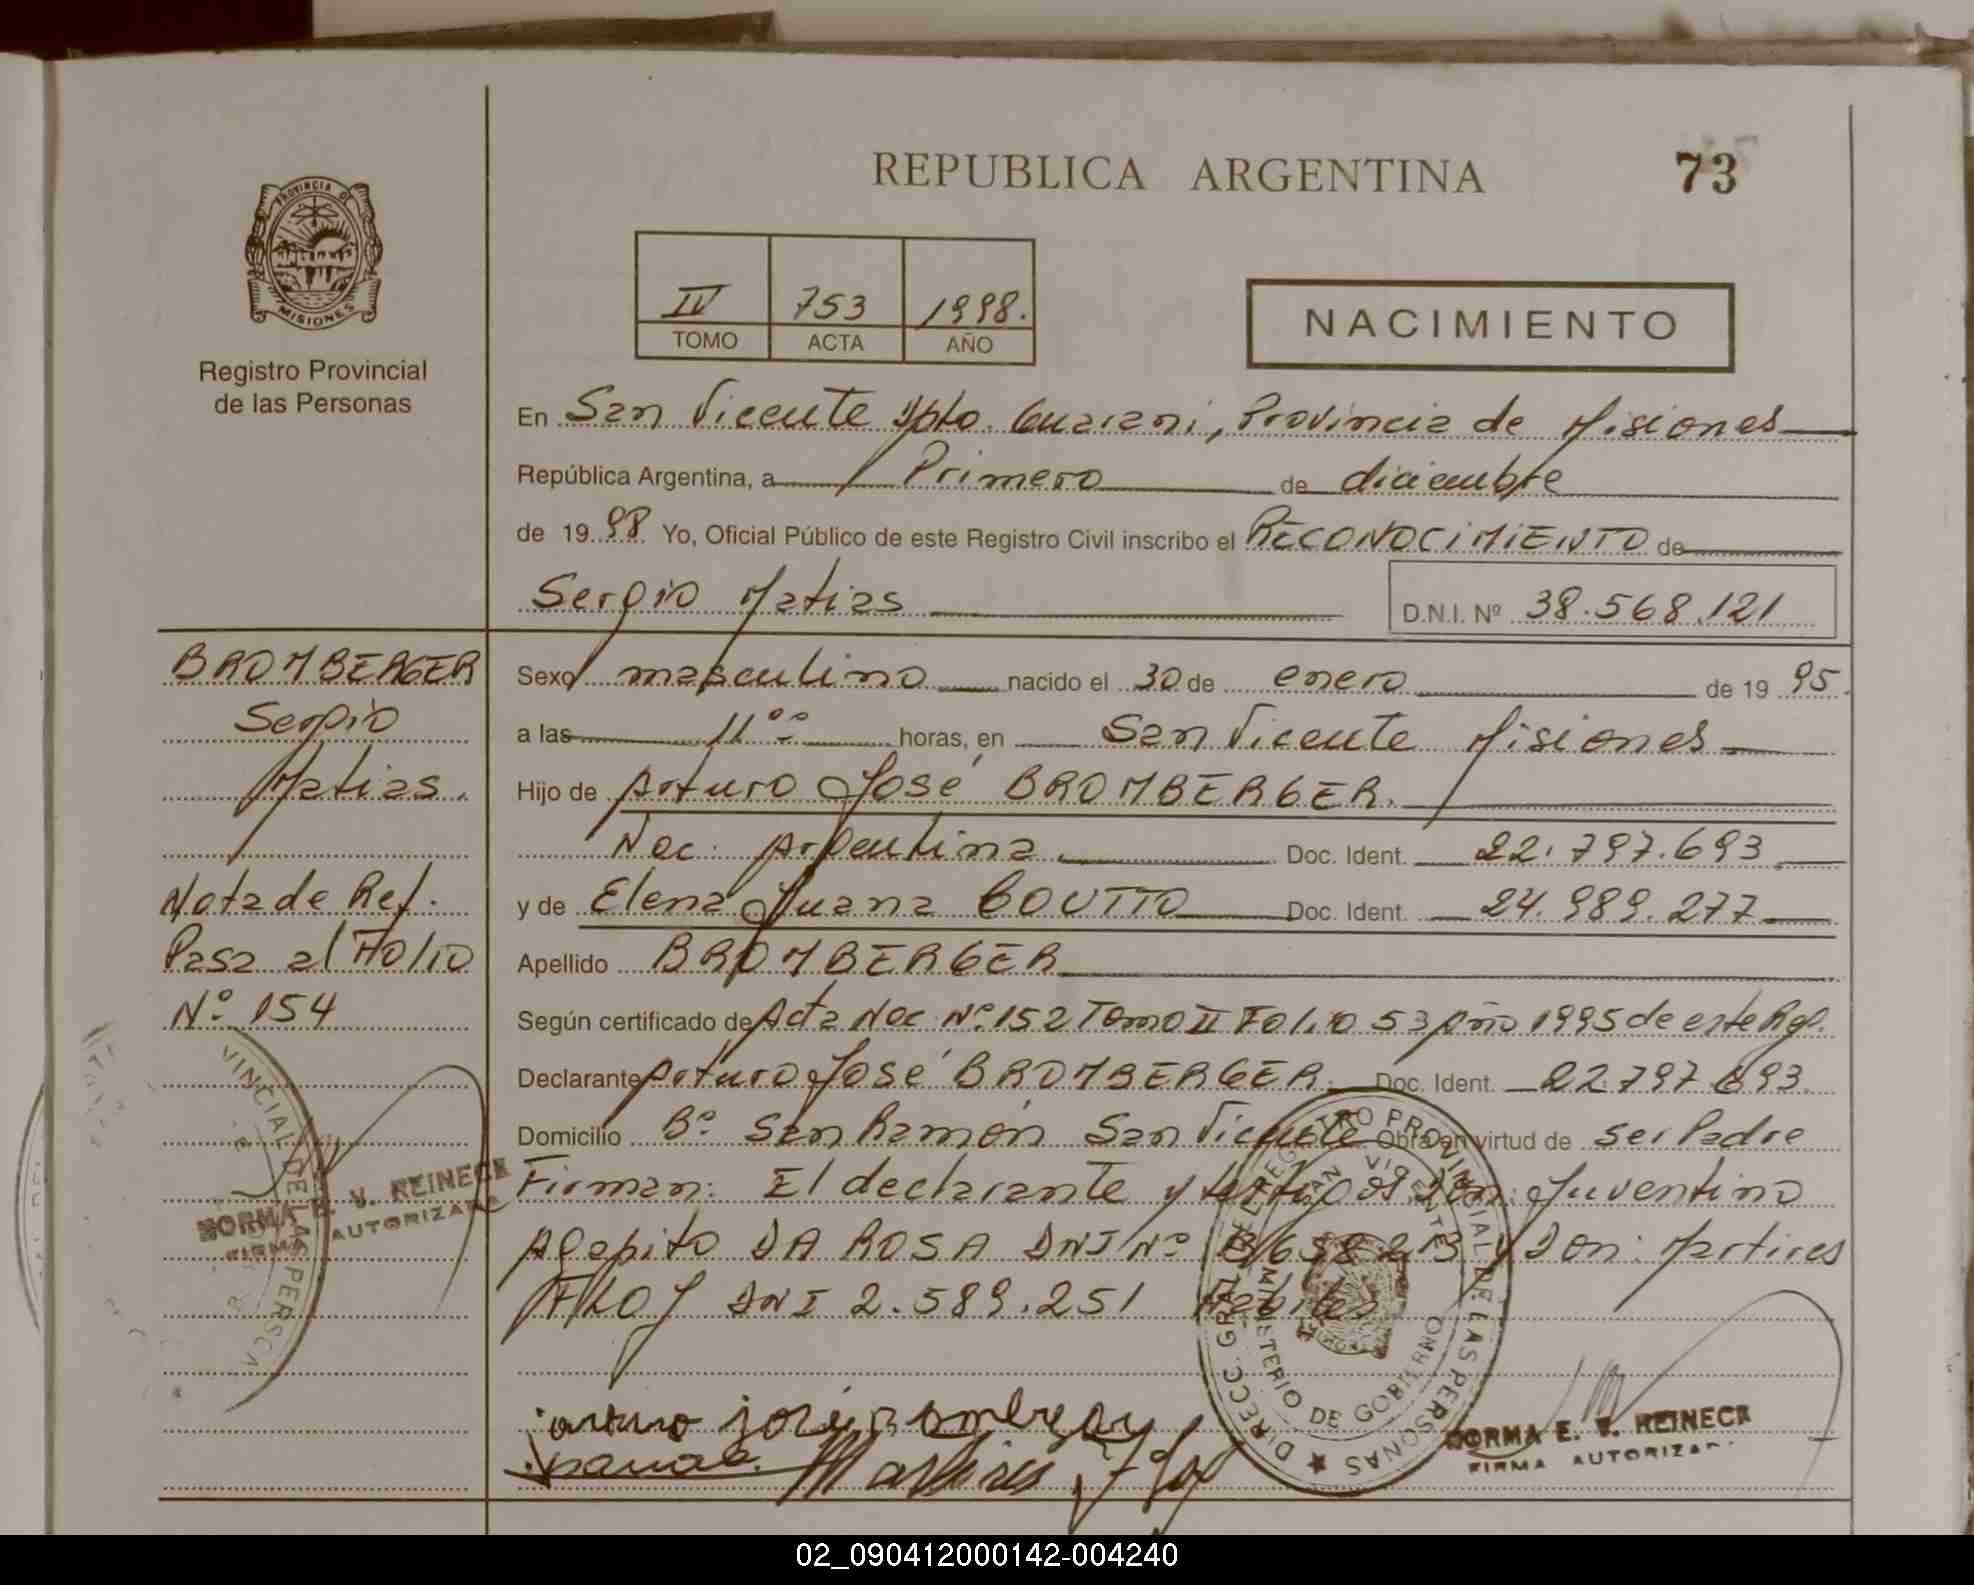 REPUBLICA ARGENTINA
73
PROVINCIA DE
MISIONES
Registro Provincial
de las Personas
IV 753 1998.
TOMO ACTA AÑO
NACIMIENTO
En San Vicente Dpto. Guarani, Provincia de Misiones
República Argentina, a Primero de diciembre
de 1998 Yo, Oficial Público de este Registro Civil inscribo el RECONOCIMIENTO de
Sergio Matias
D.N.I. Nº 38.568.121
BROMBERGER
Sergio
Matias.
Nota de Ref.
Pasa al FOLIO
Nº 154
Sexo masculino nacido el 30 de enero de 1995.
a las 11 00 horas, en San Vicente Misiones
Hijo de Arturo José BROMBERGER.
Nac. Argentina. Doc. Ident. 22.797.693
y de Elena Juana COUTTO Doc. Ident. 24.989.277
Apellido BROMBERGER
Según certificado de Acta Nac Nº 152 Tomo II Folio 53 Año 1995 de este Reg.
Declarante Arturo José BROMBERGER Doc. Ident. 22.797.693.
Domicilio Bº San Ramón San Vicente Obra en virtud de ser Padre
Firman: El declarante y testigos Don: Juventino
Agapito DA ROSA DNI Nº y Don: Martires
FLOJ DNI 2.589.251 Habiles
arturo josé
Martires
VINCIAL DE LAS PERSO
NORMA E. V. REINECK
FIRMA AUTORIZADA
DIRECC. GRAL. DEL REGISTRO PROVINCIAL DE LAS PERSONAS
SAN VICENTE
MINISTERIO DE GOBIERNO
NORMA E. V. REINECK
FIRMA AUTORIZAD
02_090412000142-004240